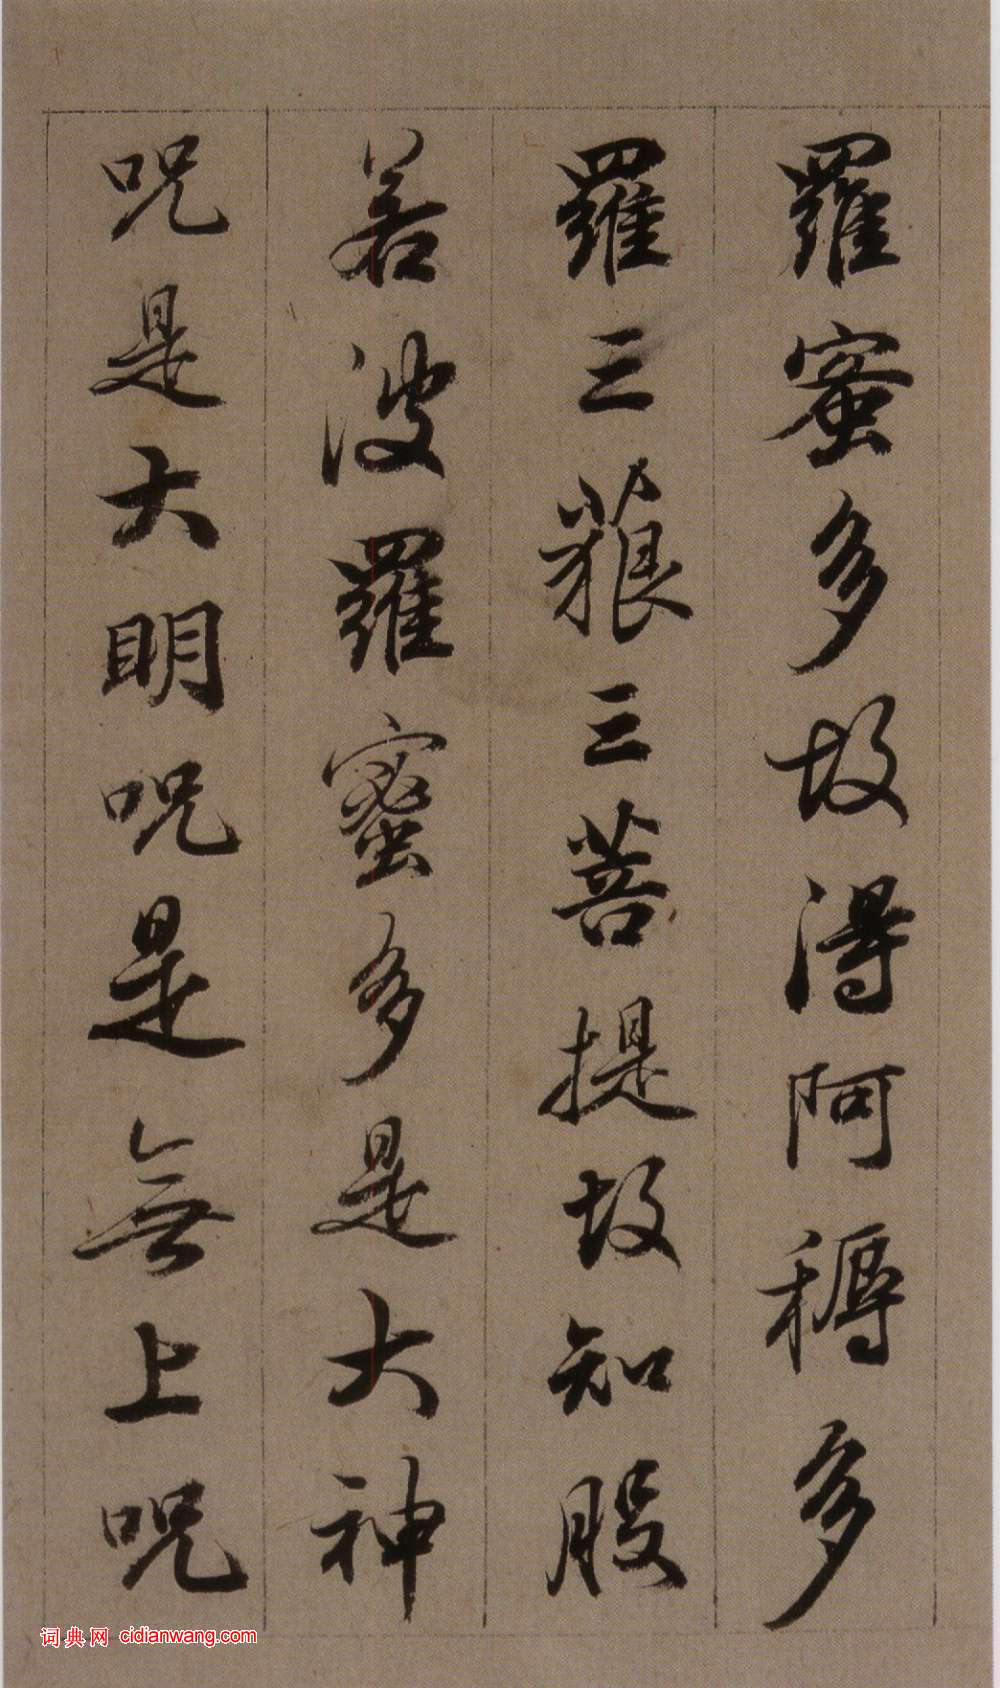 羅蜜多故得阿耨多
羅三藐三菩提故知般
若波羅蜜多是大神
呪是大明呪是無上呪
词典网 cidianwang.com